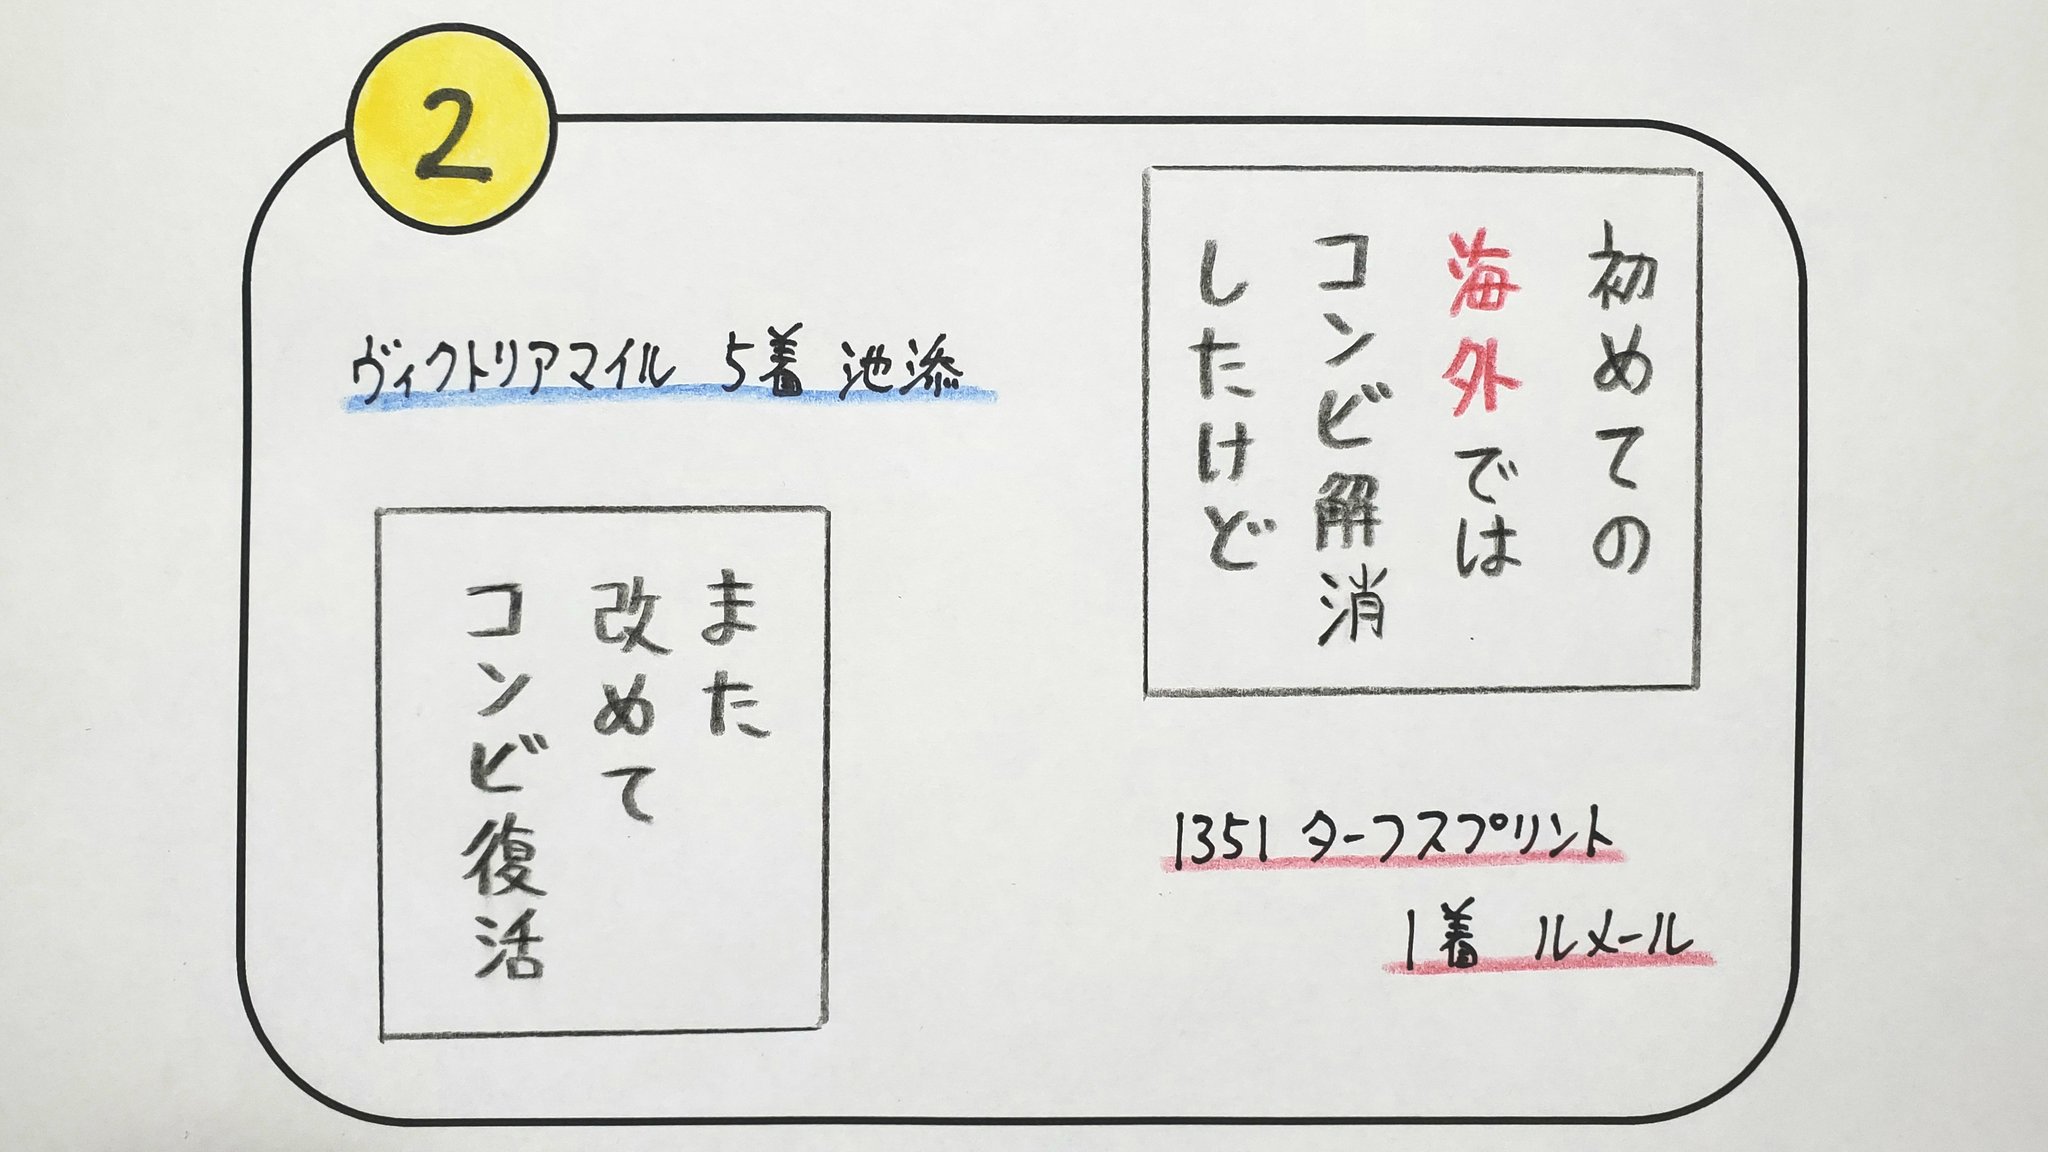 2
初めての
海外では
コンビ解消
したけど
1351 ターフスプリント
1着 ルメール
ヴィクトリアマイル 5着 池添
また
改めて
コンビ復活